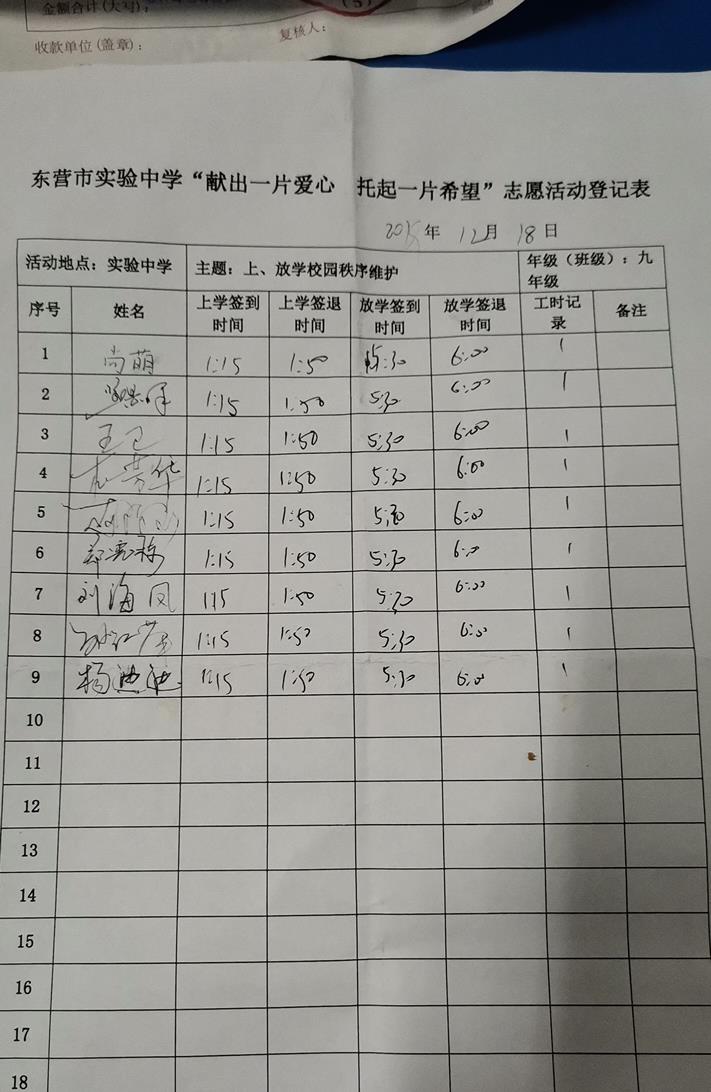 金额合计(大写):
(5)
收款单位(盖章): 复核人:
东营市实验中学“献出一片爱心 托起一片希望”志愿活动登记表
年 12月 18日
活动地点：实验中学 主题：上、放学校园秩序维护 年级（班级）：九年级
序号 姓名 上学签到时间 上学签退时间 放学签到时间 放学签退时间 工时记录 备注
1 尚萌 1:15 1:50 5:30 6:00 1
2 1:15 1:50 5:30 6:00 1
3 王卫 1:15 1:50 5:30 6:00 1
4 1:15 1:50 5:30 6:00 1
5 1:15 1:50 5:30 6:00 1
6 1:15 1:50 5:30 6:00 1
7 刘海凤 1:15 1:50 5:30 6:00 1
8 1:15 1:50 5:30 6:00 1
9 杨 1:15 1:50 5:30 6:00 1
10
11
12
13
14
15
16
17
18